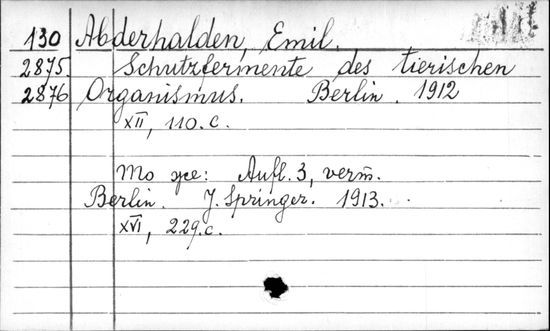 130 Abderhalden, Emil.
2875. Schutzfermente des tierischen
2876 Organismus. Berlin. 1912
XII, 110.c.
То же: Aufl. 3, verm̄.
Berlin. J. Springer. 1913.
XVI, 229.c.